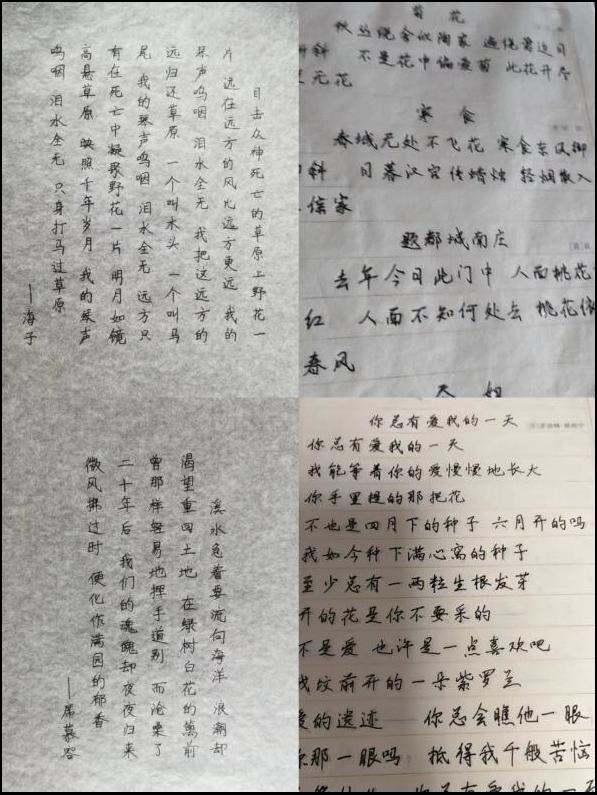 目击众神死亡的草原上野花一
片 远在远方的风比远方更远 我的
琴声呜咽 泪水全无 我把这远方的
远归还草原 一个叫木头 一个叫马
尾 我的琴声呜咽 泪水全无 远方只
有在死亡中凝聚野花一片 明月如镜
高悬草原 映照千年岁月 我的琴声
呜咽 泪水全无 只身打马过草原
——海子
菊花
秋丛绕舍似陶家 遍绕篱边日
斜 不是花中偏爱菊 此花开尽
无花
寒食
春城无处不飞花 寒食东风御
斜 日暮汉宫传蜡烛 轻烟散入
侯家
题都城南庄
去年今日此门中 人面桃花
红 人面不知何处去 桃花依
春风
溪水急着要流向海洋 浪潮却
渴望重回土地 在绿树白花的篱前
曾那样轻易地挥手道别 而沧桑了
二十年后 我们的魂魄却夜夜归来
微风拂过时 便化作满园的郁香
——席慕容
你总有爱我的一天
你总有爱我的一天
我能等着你的爱慢慢地长大
你手里提的那把花
不也是四月下的种子 六月开的吗
我如今种下满心窝的种子
至少总有一两粒生根发芽
开的花是你不要采的
不是爱 也许是一点喜欢吧
坟前开的一朵紫罗兰
爱的遗迹 你总会瞧他一眼
你那一眼吗 抵得我千般苦恼